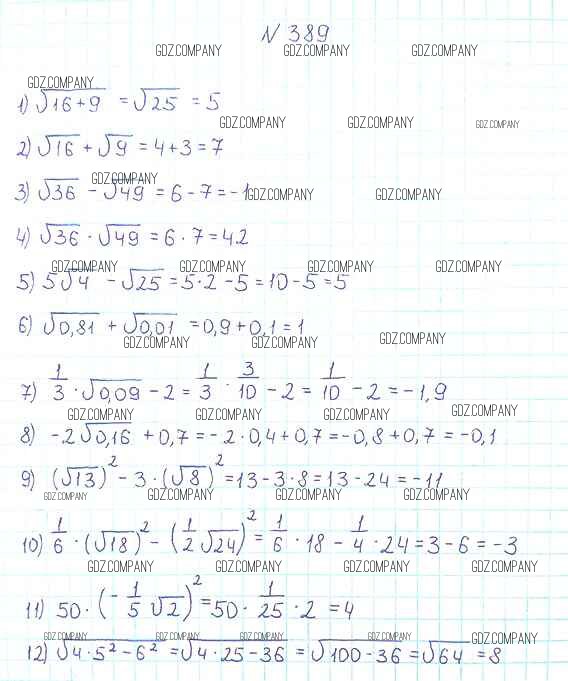 N 389
GDZ.COMPANY GDZ.COMPANY GDZ.COMPANY
GDZ.COMPANY
1) √(16+9) = √25 = 5
GDZ.COMPANY GDZ.COMPANY GDZ.COMPANY
2) √16 + √9 = 4+3 = 7
GDZ.COMPANY
3) √36 - √49 = 6 - 7 = -1
GDZ.COMPANY GDZ.COMPANY
4) √36 · √49 = 6 · 7 = 42
GDZ.COMPANY GDZ.COMPANY GDZ.COMPANY GDZ.COMPANY
5) 5√4 - √25 = 5·2 - 5 = 10 - 5 = 5
6) √0,81 + √0,01 = 0,9 + 0,1 = 1
GDZ.COMPANY GDZ.COMPANY GDZ.COMPANY
7) 1/3 · √0,09 - 2 = 1/3 · 3/10 - 2 = 1/10 - 2 = -1,9
GDZ.COMPANY GDZ.COMPANY GDZ.COMPANY GDZ.COMPANY
8) -2√0,16 + 0,7 = -2·0,4 + 0,7 = -0,8 + 0,7 = -0,1
9) (√13)² - 3·(√8)² = 13 - 3·8 = 13 - 24 = -11
GDZ.COMPANY GDZ.COMPANY GDZ.COMPANY GDZ.COMPANY
10) 1/6 · (√18)² - (1/2 √24)² = 1/6 · 18 - 1/4 · 24 = 3 - 6 = -3
GDZ.COMPANY GDZ.COMPANY GDZ.COMPANY GDZ.COMPANY
11) 50 · (-1/5 √2)² = 50 · 1/25 · 2 = 4
GDZ.COMPANY GDZ.COMPANY GDZ.COMPANY GDZ.COMPANY GDZ.COMPANY
12) √(4·5² - 6²) = √(4·25 - 36) = √(100 - 36) = √64 = 8